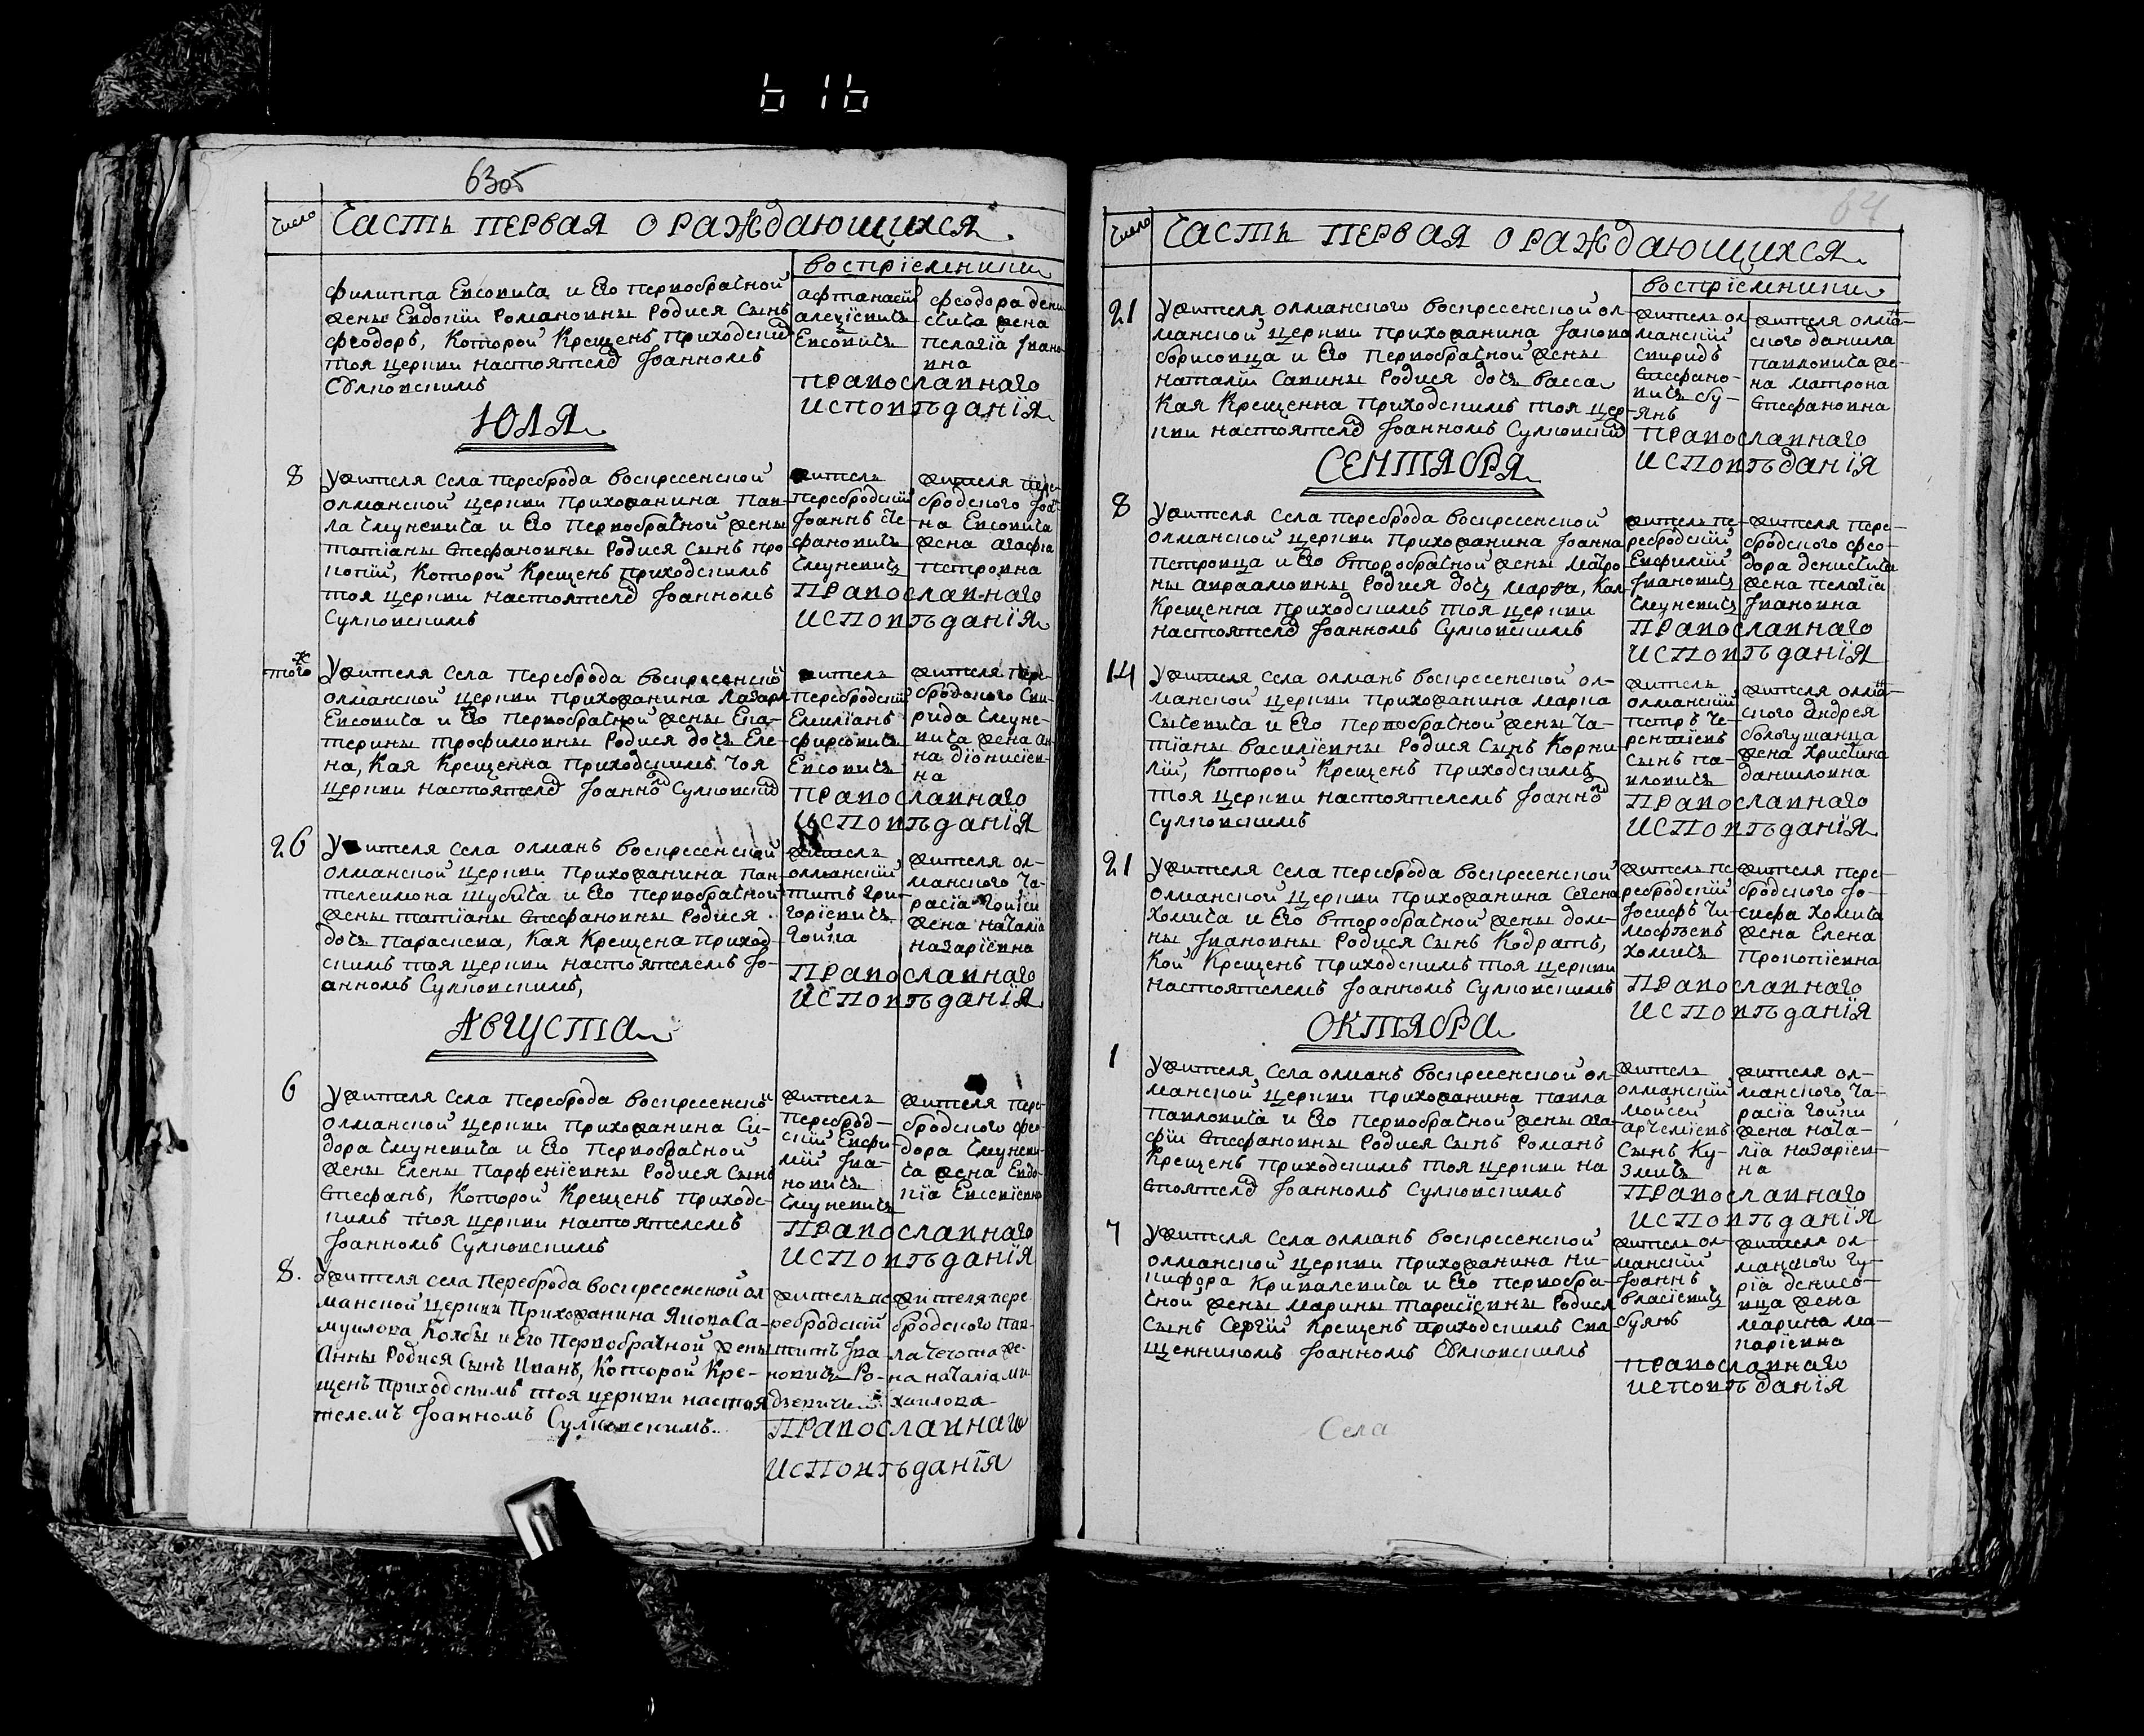 63об
Число
Часть первая о раждающихся
воспріемники
Филиппа Евсовича и Его Первобрачной
жены Евдокіи Романовны Родися Сынъ
Феодоръ, Которой Крещенъ Приходскимъ
тоя церкви настоятелем Іоанномъ
Сулковскимъ
Афтанасій
алексіевичъ
Евсовичъ
Феодора дени
жена
Пелагіа Ивано
вна
Православнаго
исповѣданія
ЮЛЯ
8
У жителя Села Переброда Воскресенской
олманской церкви Прихожанина Пав-
ла Смуневича и Его Первобрачной жены
татіаны Стефановны Родися Сынъ Про
копій, Которой Крещенъ приходскимъ
тоя церкви настоятелем Іоанномъ
Сулковскимъ
житель
Перебродскій
Іоаннъ Сте-
фановичъ
Смуневичъ
жителя Пере-
бродского Іоа-
на Евсовича
жена агафіа
Петровна
Православнаго
исповѣданія
тогож
У жителя Села Переброда Воскресенской
олманской церкви Прихожанина Лазаря
Евсовича и Его Первобрачной жены Ека-
терины Трофимовны Родися дочь Еле-
на, Кая Крещенна Приходскимъ тоя
церкви настоятелем Іоанном Сулковским
житель
Перебродскій
Емиліанъ
фирсовичъ
Евсовичъ
жителя Пере-
бродского Спи-
рида Смуне-
вича жена ан-
на діонисіев-
на
Православнаго
исповѣданія
26
У жителя Села олманъ Воскресенской
олманской церкви Прихожанина Пан-
телеимона Шубича и Его Первобрачной
жены татіаны Стефановны Родися
дочь Параскева, Кая Крещена Приход-
скимъ тоя церкви настоятелемъ Іо-
анномъ Сулковскимъ,
житель
олманскій
титъ гри-
горіевичъ
Гойка
жителя ол-
манского Та-
расіа Гойки
жена наталіа
назаріевна
Православнаго
исповѣданія
АВГУСТА
6
У жителя Села Переброда Воскресенской
олманской церкви Прихожанина Си-
дора Смуневича и Его Первобрачной
жены Елены Парфеніевны Родися Сынъ
Стефанъ, Которой Крещенъ Приходс-
кимъ тоя церкви настоятелемъ
Іоанномъ Сулковскимъ
житель
Переброд-
скій Евфи-
мій Ива-
новичъ
Смуневичъ
жителя Пере-
бродского Фео-
дора Смуневи-
ча жена Евдо-
кіа Евсевіевна
Православнаго
исповѣданія
8.
У жителя села Переброда Воскресенской ол
манской церкви Прихожанина Якова Са-
муилова Колбы и Его Первобрачной жены
Анны Родися Сынъ Иванъ, Которой Кре-
щенъ Приходскимъ тоя церкви настоя
телемъ Іоанномъ Сулковскимъ.
житель пе
ребродскій
титъ Ива-
новичъ Ро-
дзевичъ
жителя пере
бродского Пав-
ла Чечота же-
на наталіа ми
хаилова
Православнаго
исповѣданія
64
Число
Часть первая о раждающихся
воспріемники
21
У жителя олманского Воскресенской ол-
манской церкви Прихожанина Іакова
Борисовца и Его Первобрачной жены
наталіи Савины Родися дочь Васса
Кая Крещенна Приходскимъ тоя цер-
кви настоятелем Іоанномъ Сулковским
житель ол
манскій
Спиридъ
Стефано-
вичъ Бу-
янъ
жителя олма-
нского данила
Павловича же-
на Матрона
Стефановна
Православнаго
исповѣданія
СЕНТЯБРЯ
8
У жителя Села Переброда Воскресенской
олманской церкви Прихожанина Іоанна
Петровца и Его второбрачной жены Матро
ны авраамовны Родися дочь Марфа, Кая
Крещенна Приходскимъ тоя церкви
настоятелем Іоанномъ Сулковскимъ
житель пе-
ребродскій
Евфимій
Ивановичъ
Смуневичъ
жителя Пере-
бродского Фео-
дора денисича
жена Пелагіа
Ивановна
Православнаго
исповѣданія
14
У жителя Села олманъ Воскресенской ол-
манской церкви Прихожанина Марка
Сычевича и Его Первобрачной жены Та-
тіаны Василіевны Родися Сынъ Корни
лій, Которой Крещенъ Приходскимъ
тоя церкви настоятелемъ Іоанном
Сулковскимъ
житель
олманскій
Петръ Те-
рентіевъ
Сынъ Па-
вловичъ
жителя олма-
нского андрея
Бологушанца
жена Христина
даниловна
Православнаго
исповѣданія
21
У жителя Села Переброда Воскресенской
олманской церкви Прихожанина
Хомича и Его Второбрачной жены дом-
ны Ивановны Родися Сынъ Кодратъ,
Кой Крещенъ Приходскимъ тоя церкви
настоятелемъ Іоанномъ Сулковскимъ
житель пе
ребродскій
Іосифъ Ти-
мофѣевъ
Хомичъ
жителя Пере-
бродского Іо-
сифа Хомича
жена Елена
Прокопіевна
Православнаго
исповѣданія
ОКТЯБРА
1
У жителя Села олманъ Воскресенской ол-
манской церкви Прихожанина Павла
Павловича и Его Первобрачной жены ага-
фіи Стефановны Родися Сынъ Романъ
Крещенъ Приходскимъ тоя церкви на
стоятелем Іоанномъ Сулковскимъ
житель
олманскій
Мойсей
арчеміевъ
Сынъ Ку-
змичъ
жителя ол-
манского Та-
расіа Гойки
жена ната-
ліа назаріев-
на
Православнаго
исповѣданія
7
У жителя Села олманъ Воскресенской
олманской церкви Прихожанина Ни-
кифора Кривалевича и Его Первобра-
чной жены Марины Тарасіевны Родися
Сынъ Сергій Крещенъ Приходскимъ Свя
щенникомъ Іоанномъ Сулковскимъ
житель ол-
манскій
Іоаннъ
Власіевичъ
Буянъ
жителя ол-
манского Гу-
ріа денисо-
вца жена
Марина Ма-
каріевна
Православнаго
исповѣданія
Села